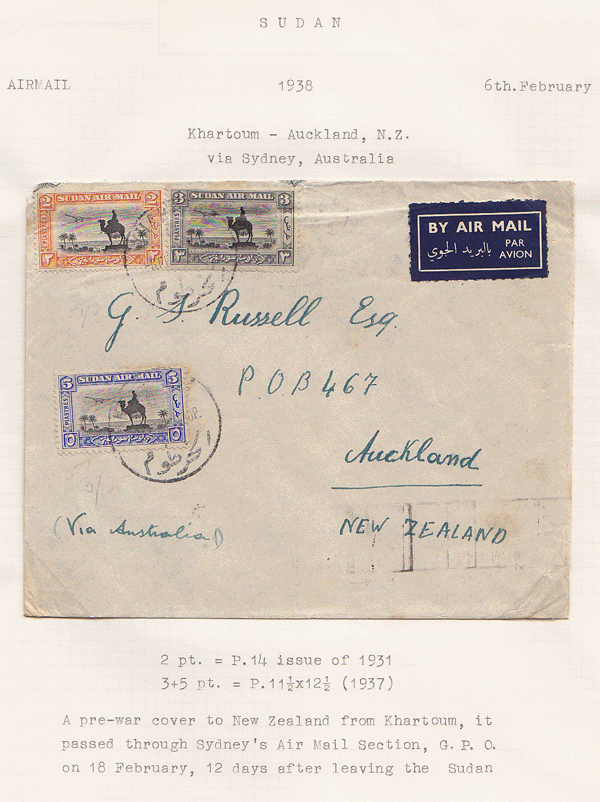 SUDAN
AIRMAIL 1938 6th.February
Khartoum - Auckland, N.Z.
via Sydney, Australia
2 SUDAN AIR MAIL 2
PIASTRES
٢ ٢
3 SUDAN AIR MAIL 3
PIASTRES
٣ ٣
BY AIR MAIL
بالبريد الجوي PAR AVION
الخرطوم
G. S. Russell Esq.
P.O B 467
5 SUDAN AIR MAIL 5
PIASTRES
٥ ٥
الخرطوم
Auckland
(Via Australia)
NEW ZEALAND
2 pt. = P.14 issue of 1931
3+5 pt. = P.11½x12½ (1937)
A pre-war cover to New Zealand from Khartoum, it
passed through Sydney's Air Mail Section, G. P. O.
on 18 February, 12 days after leaving the Sudan